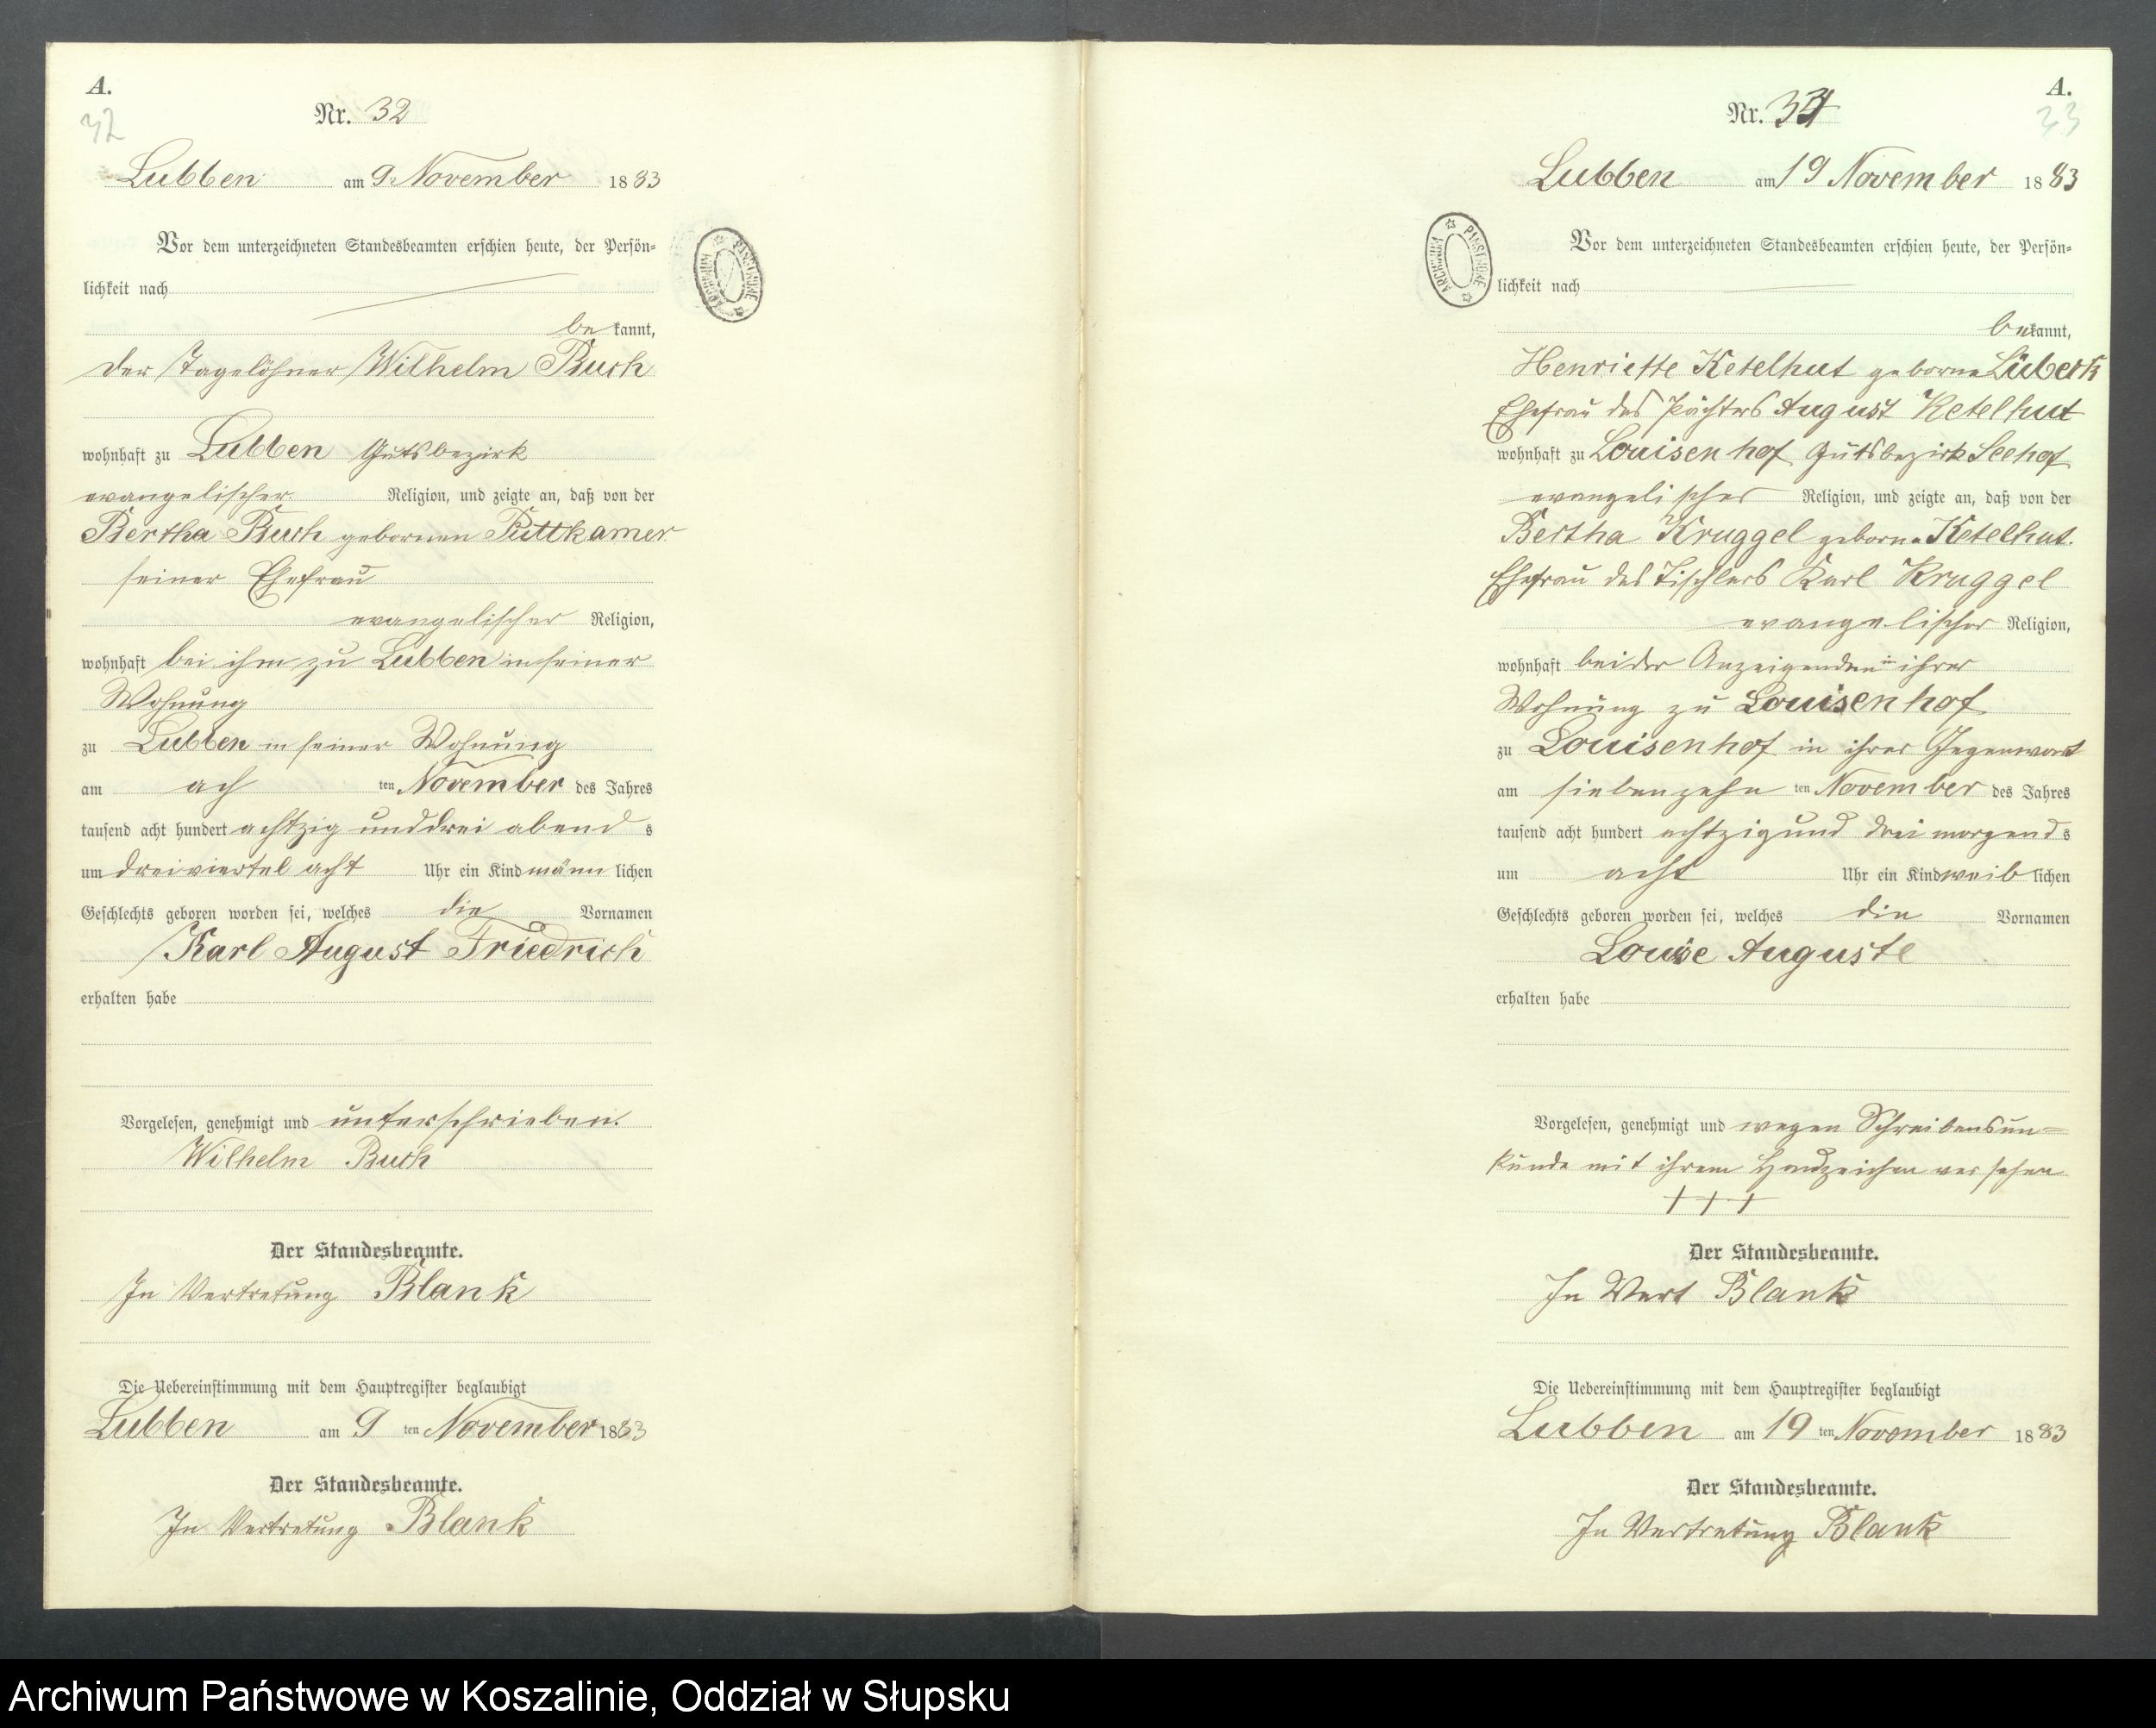 A.
32
Nr. 32
Lubben am 9. November 1883
Vor dem unterzeichneten Standesbeamten erschien heute, der Persön=
lichkeit nach
be kannt,
der Tagelöhner Wilhelm Buch
wohnhaft zu Lubben Gutsbezirk
evangelischer Religion, und zeigte an, daß von der
Bertha Buch gebornen Puttkamer
seiner Ehefrau
evangelischer Religion,
wohnhaft bei ihm zu Lubben in seiner
Wohnung
zu Lubben in seiner Wohnung
am ach ten November des Jahres
tausend acht hundert achtzig und drei abend s
um dreiviertel acht Uhr ein Kind männ lichen
Geschlechts geboren worden sei, welches die Vornamen
Karl August Friedrich
erhalten habe
Vorgelesen, genehmigt und unterschrieben.
Wilhelm Buch
Der Standesbeamte.
In Vertretung Blank
Die Uebereinstimmung mit dem Hauptregister beglaubigt
Lubben am 9 ten November 1883
Der Standesbeamte.
In Vertretung Blank
ARCHIWUM PAŃSTWOWE
A.
33
Nr.
Lubben am 19 November 1883
Vor dem unterzeichneten Standesbeamten erschien heute, der Persön=
lichkeit nach
be kannt,
Henriette Ketelhut geborne Lübeck
Ehefrau des Pächters August Ketelhut
wohnhaft zu Louisenhof Gutsbezirk Seehof
evangelischer Religion, und zeigte an, daß von der
Bertha Kruggel geborne Ketelhut.
Ehefrau des Tischlers Karl Kruggel
evangelischer Religion,
wohnhaft bei der Anzeigenden in ihrer
Wohnung zu Louisenhof
zu Louisenhof in ihrer Gegenwart
am siebenzehn ten November des Jahres
tausend acht hundert achtzig und drei morgend s
um acht Uhr ein Kind weib lichen
Geschlechts geboren worden sei, welches die Vornamen
Louise Auguste
erhalten habe
Vorgelesen, genehmigt und wegen Schreibensun=
kunde mit ihrem Handzeichen versehen
+ + +
Der Standesbeamte.
In Vert Blank
Die Uebereinstimmung mit dem Hauptregister beglaubigt
Lubben am 19 ten November 1883
Der Standesbeamte.
In Vertretung Blank
ARCHIWUM PAŃSTWOWE
Archiwum Państwowe w Koszalinie, Oddział w Słupsku